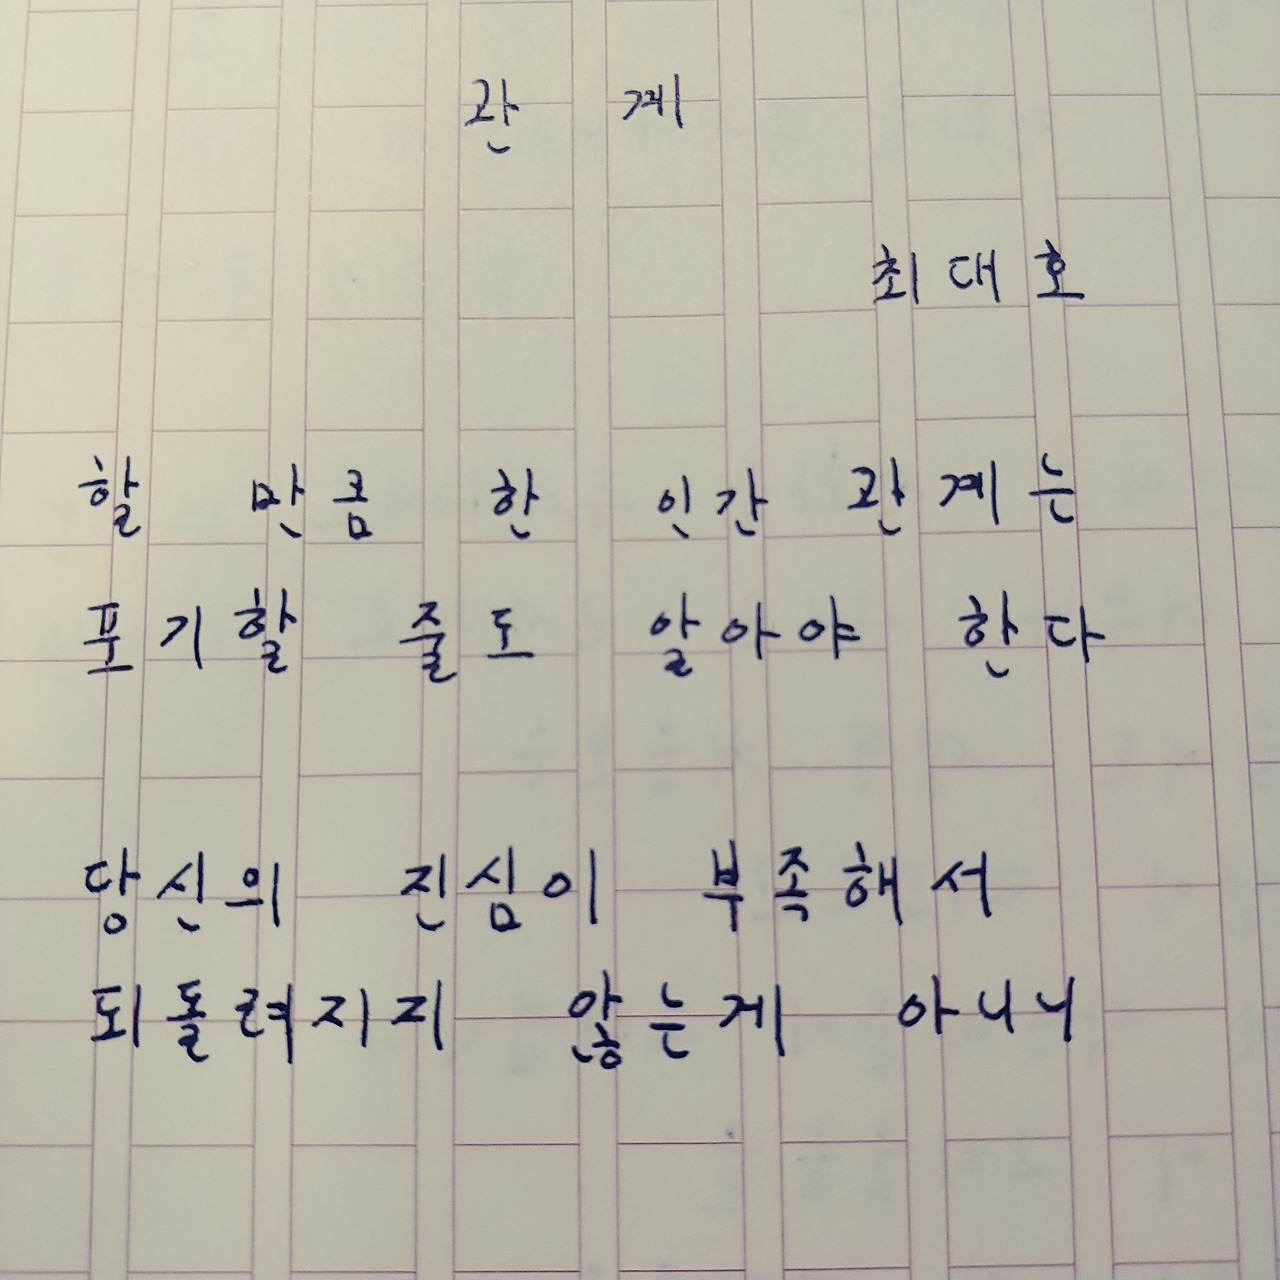 관 계
최대호
할 만큼 한 인간 관계는
포기할 줄도 알아야 한다
당신의 진심이 부족해서
되돌려지지 않는게 아니니